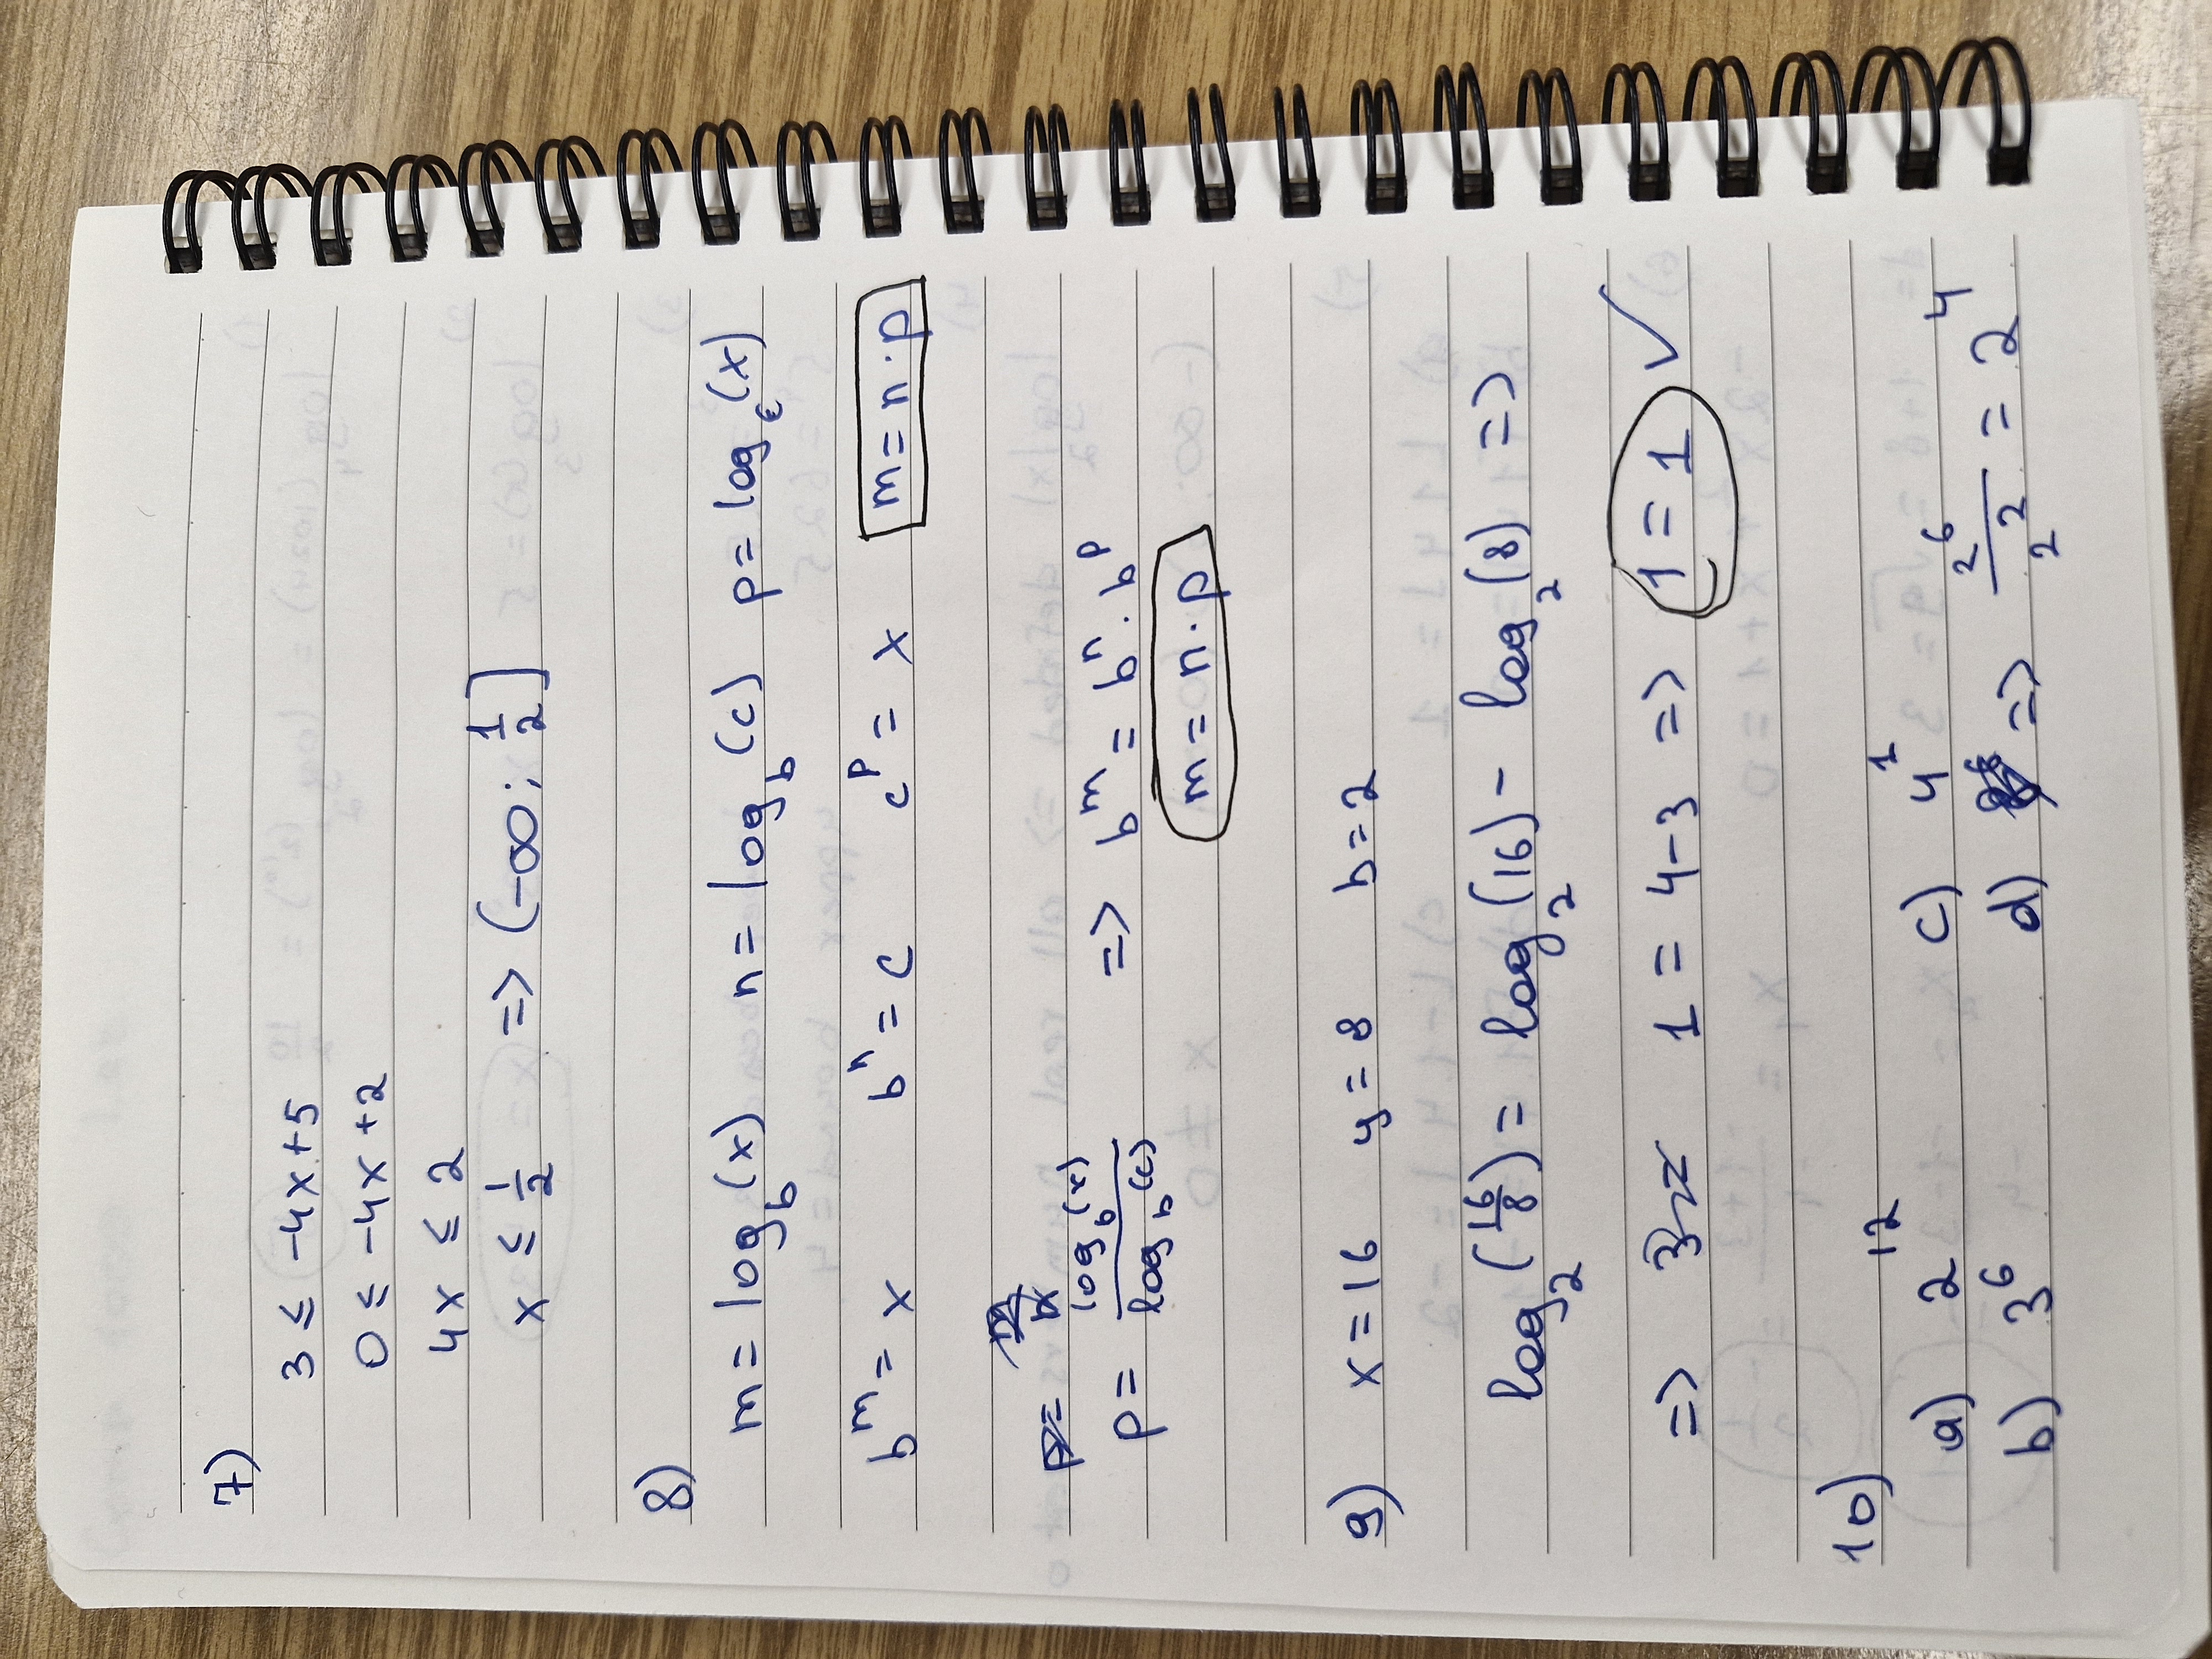 7)
3 ≤ -4x+5
0 ≤ -4x+2
4x ≤ 2
x ≤ 1/2 => (-∞; 1/2]
8)
m = log_b(x) n = log_b(c) p = log_c(x)
b^m = x b^n = c c^p = x m = n·p
p =
p = log_b(x)/log_b(c) => b^m = b^n · b^p
m = n·p
9) x = 16 y = 8 b = 2
log_2(16/8) = log_2(16) - log_2(8) =>
=> 1 = 4-3 => 1 = 1 ✓
10)
a) 2^12 c) 4^1
b) 3^6 d) => 2^6/2^2 = 2^4